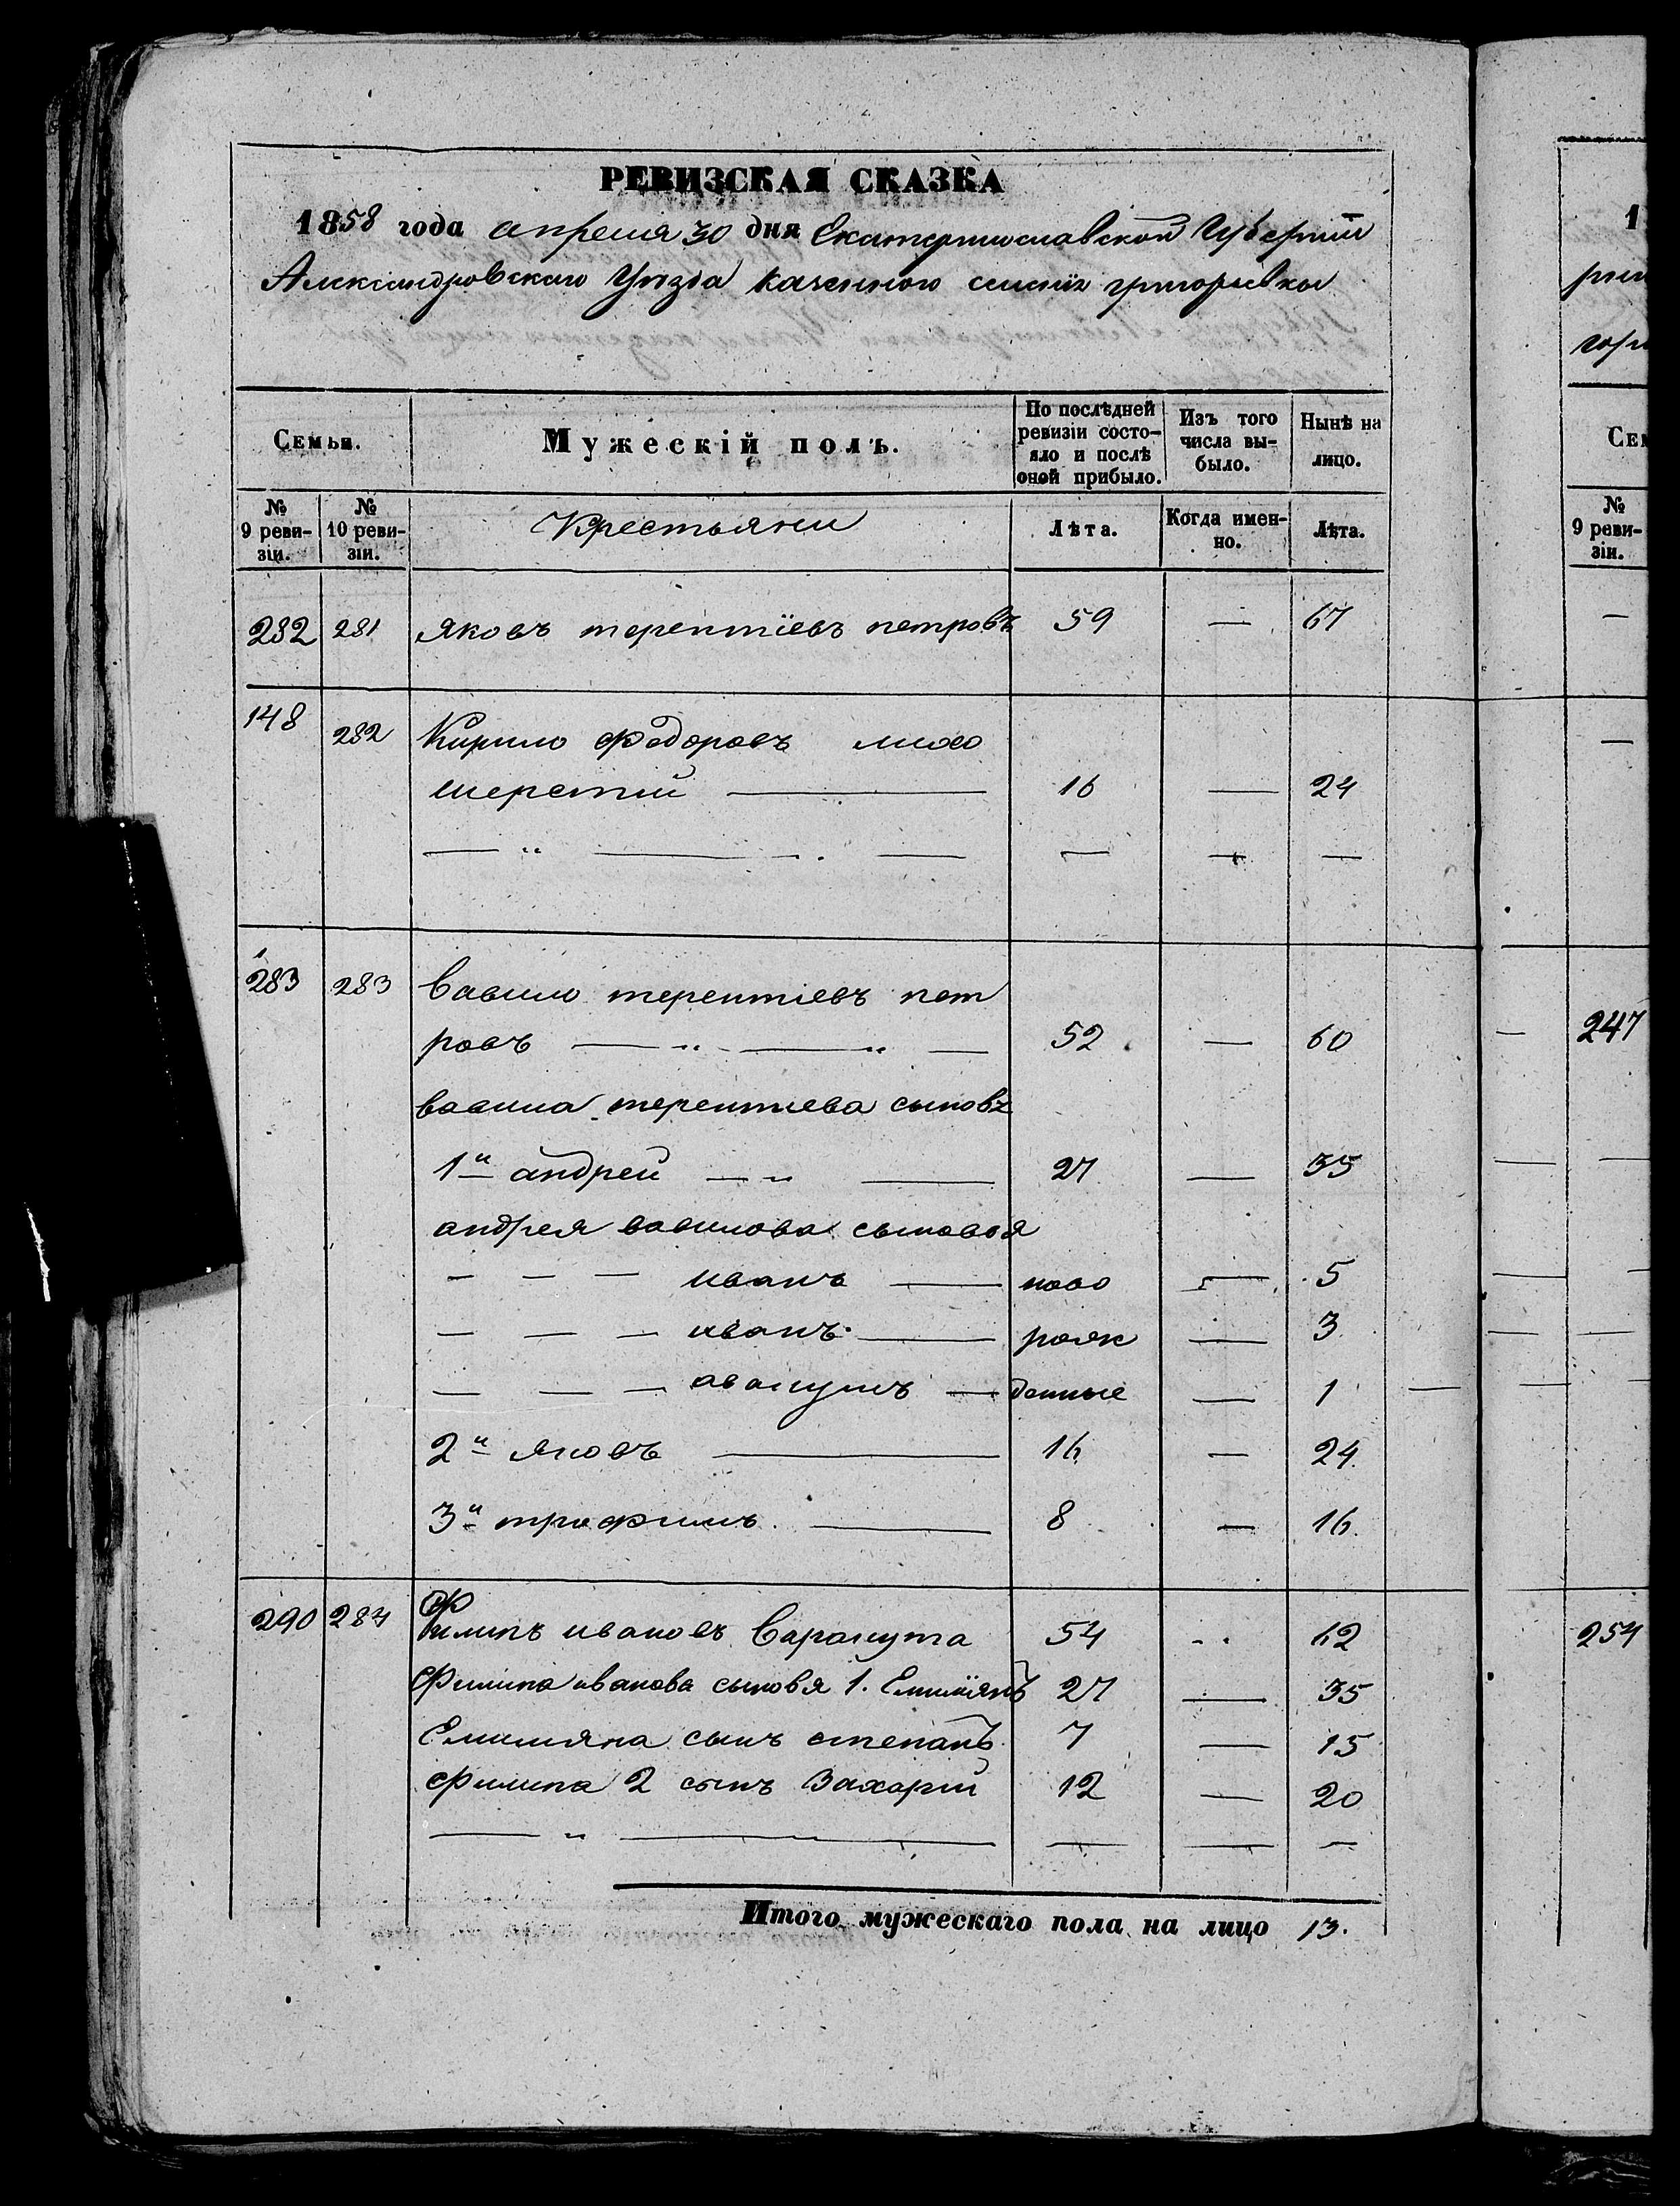 РЕВИЗСКАЯ СКАЗКА
1858 года апреля 30 дня Екатеринославской Губернии
Александровского Уѣзда казенного селенія григорьевки
Семьи.
Мужескій полъ.
По послѣдней ревизіи состо-яло и послѣ оной прибыло.
Изъ того числа вы-было.
Нынѣ на лицо.
№ 9 реви-зіи.
№ 10 реви-зіи.
Крестьяни
Лѣта.
Когда имен-но.
Лѣта.
282 281 яковъ терентіевъ петровъ 59 — 67
148 282 Кирило федоровъ лихо
шерстій — 16 — 24
283 283 вавило терентіевъ пет
ровъ — 52 — 60
вавила терентиева сыновъ
1й андрей — 27 — 35
андрея вавилова сыновья
— — — иванъ — ново — 5
— — — иванъ — рожж — 3
— — — авакумъ — денные — 1
2й яковъ — 16 — 24
3й трофимъ — 8 — 16
290 284 Филипъ ивановъ Варакута 54 - . 62
филипа иванова сыновья 1. Емилиянъ 27 — 35
Емилияна сынъ степанъ 7 — 15
филипа 2 сынъ Захарій 12 — 20
Итого мужескаго пола на лицо 13.
1
Сем
№ 9 реви-зіи.
247
254